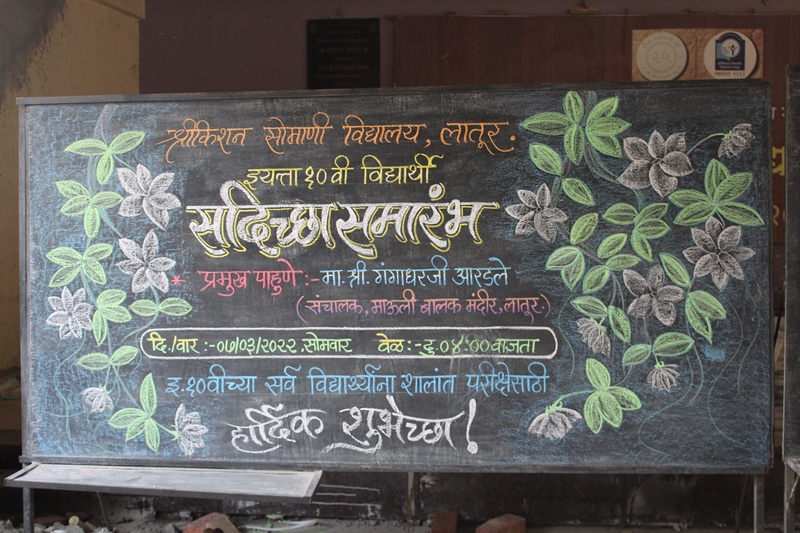 श्रीकिशन सोमाणी विद्यालय, लातूर.
इयत्ता १० वी विद्यार्थी
सदिच्छा समारंभ
* प्रमुख पाहुणे :- मा. श्री. गंगाधरजी आरडले
(संचालक, माऊली बालक मंदीर, लातूर.)
दि./वार :- ०७/०३/२०२२, सोमवार वेळ :- दु. ०४:०० वाजता
इ. १० वीच्या सर्व विद्यार्थ्यांना शालांत परीक्षेसाठी
हार्दिक शुभेच्छा!